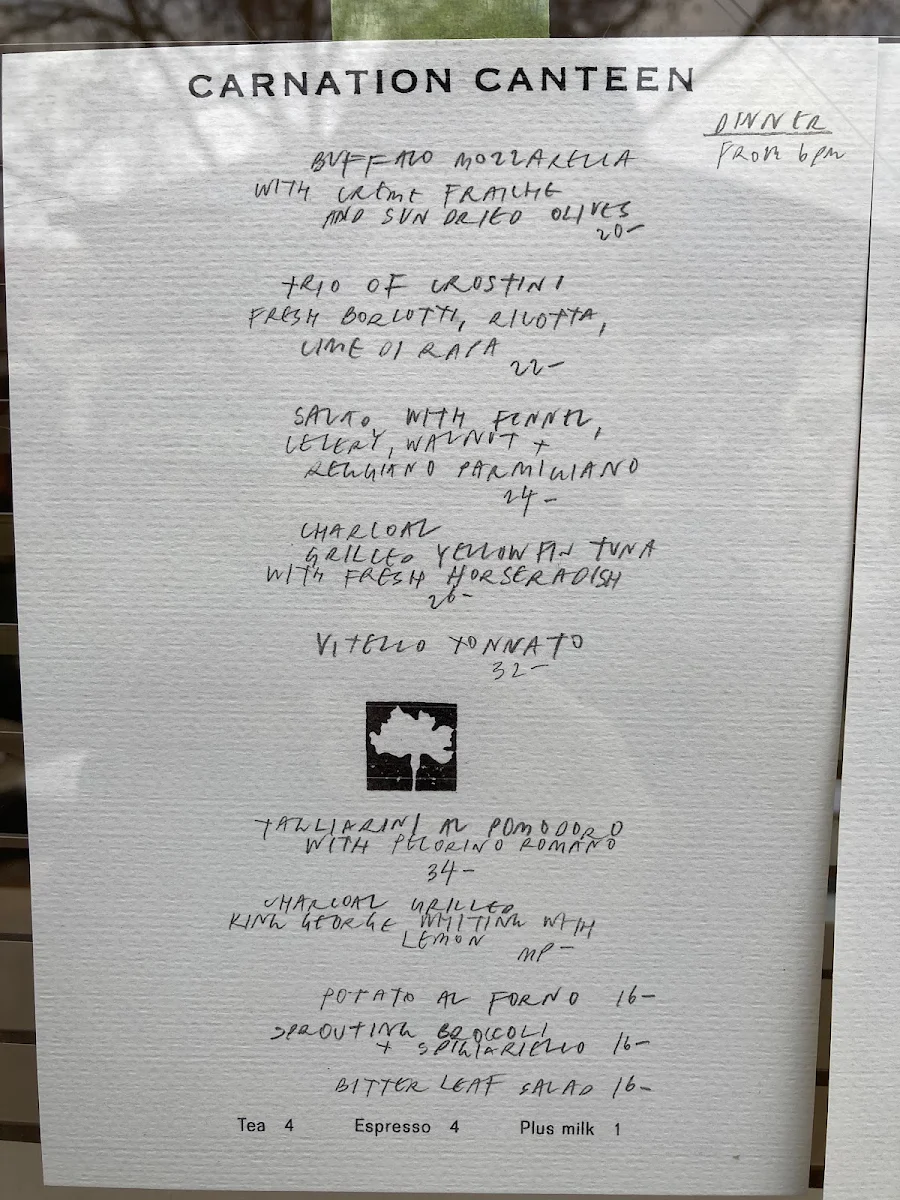 CARNATION CANTEEN
DINNER
FROM 6PM
BUFFALO MOZZARELLA
WITH CRÈME FRAICHE
AND SUN DRIED OLIVES
20-
TRIO OF CROSTINI
FRESH BORLOTTI, RICOTTA,
CIME DI RAPA
22-
SALAD WITH FENNEL,
CELERY, WALNUT +
REGGIANO PARMIGIANO
24-
CHARCOAL
GRILLED YELLOWFIN TUNA
WITH FRESH HORSERADISH
26-
VITELLO TONNATO
32-
TAGLIARINI AL POMODORO
WITH PECORINO ROMANO
34-
CHARCOAL GRILLED
KING GEORGE WHITING WITH
LEMON
MP-
POTATO AL FORNO 16-
SPROUTING BROCCOLI
+ SPIGIARIELLO 16-
BITTER LEAF SALAD 16-
Tea 4 Espresso 4 Plus milk 1